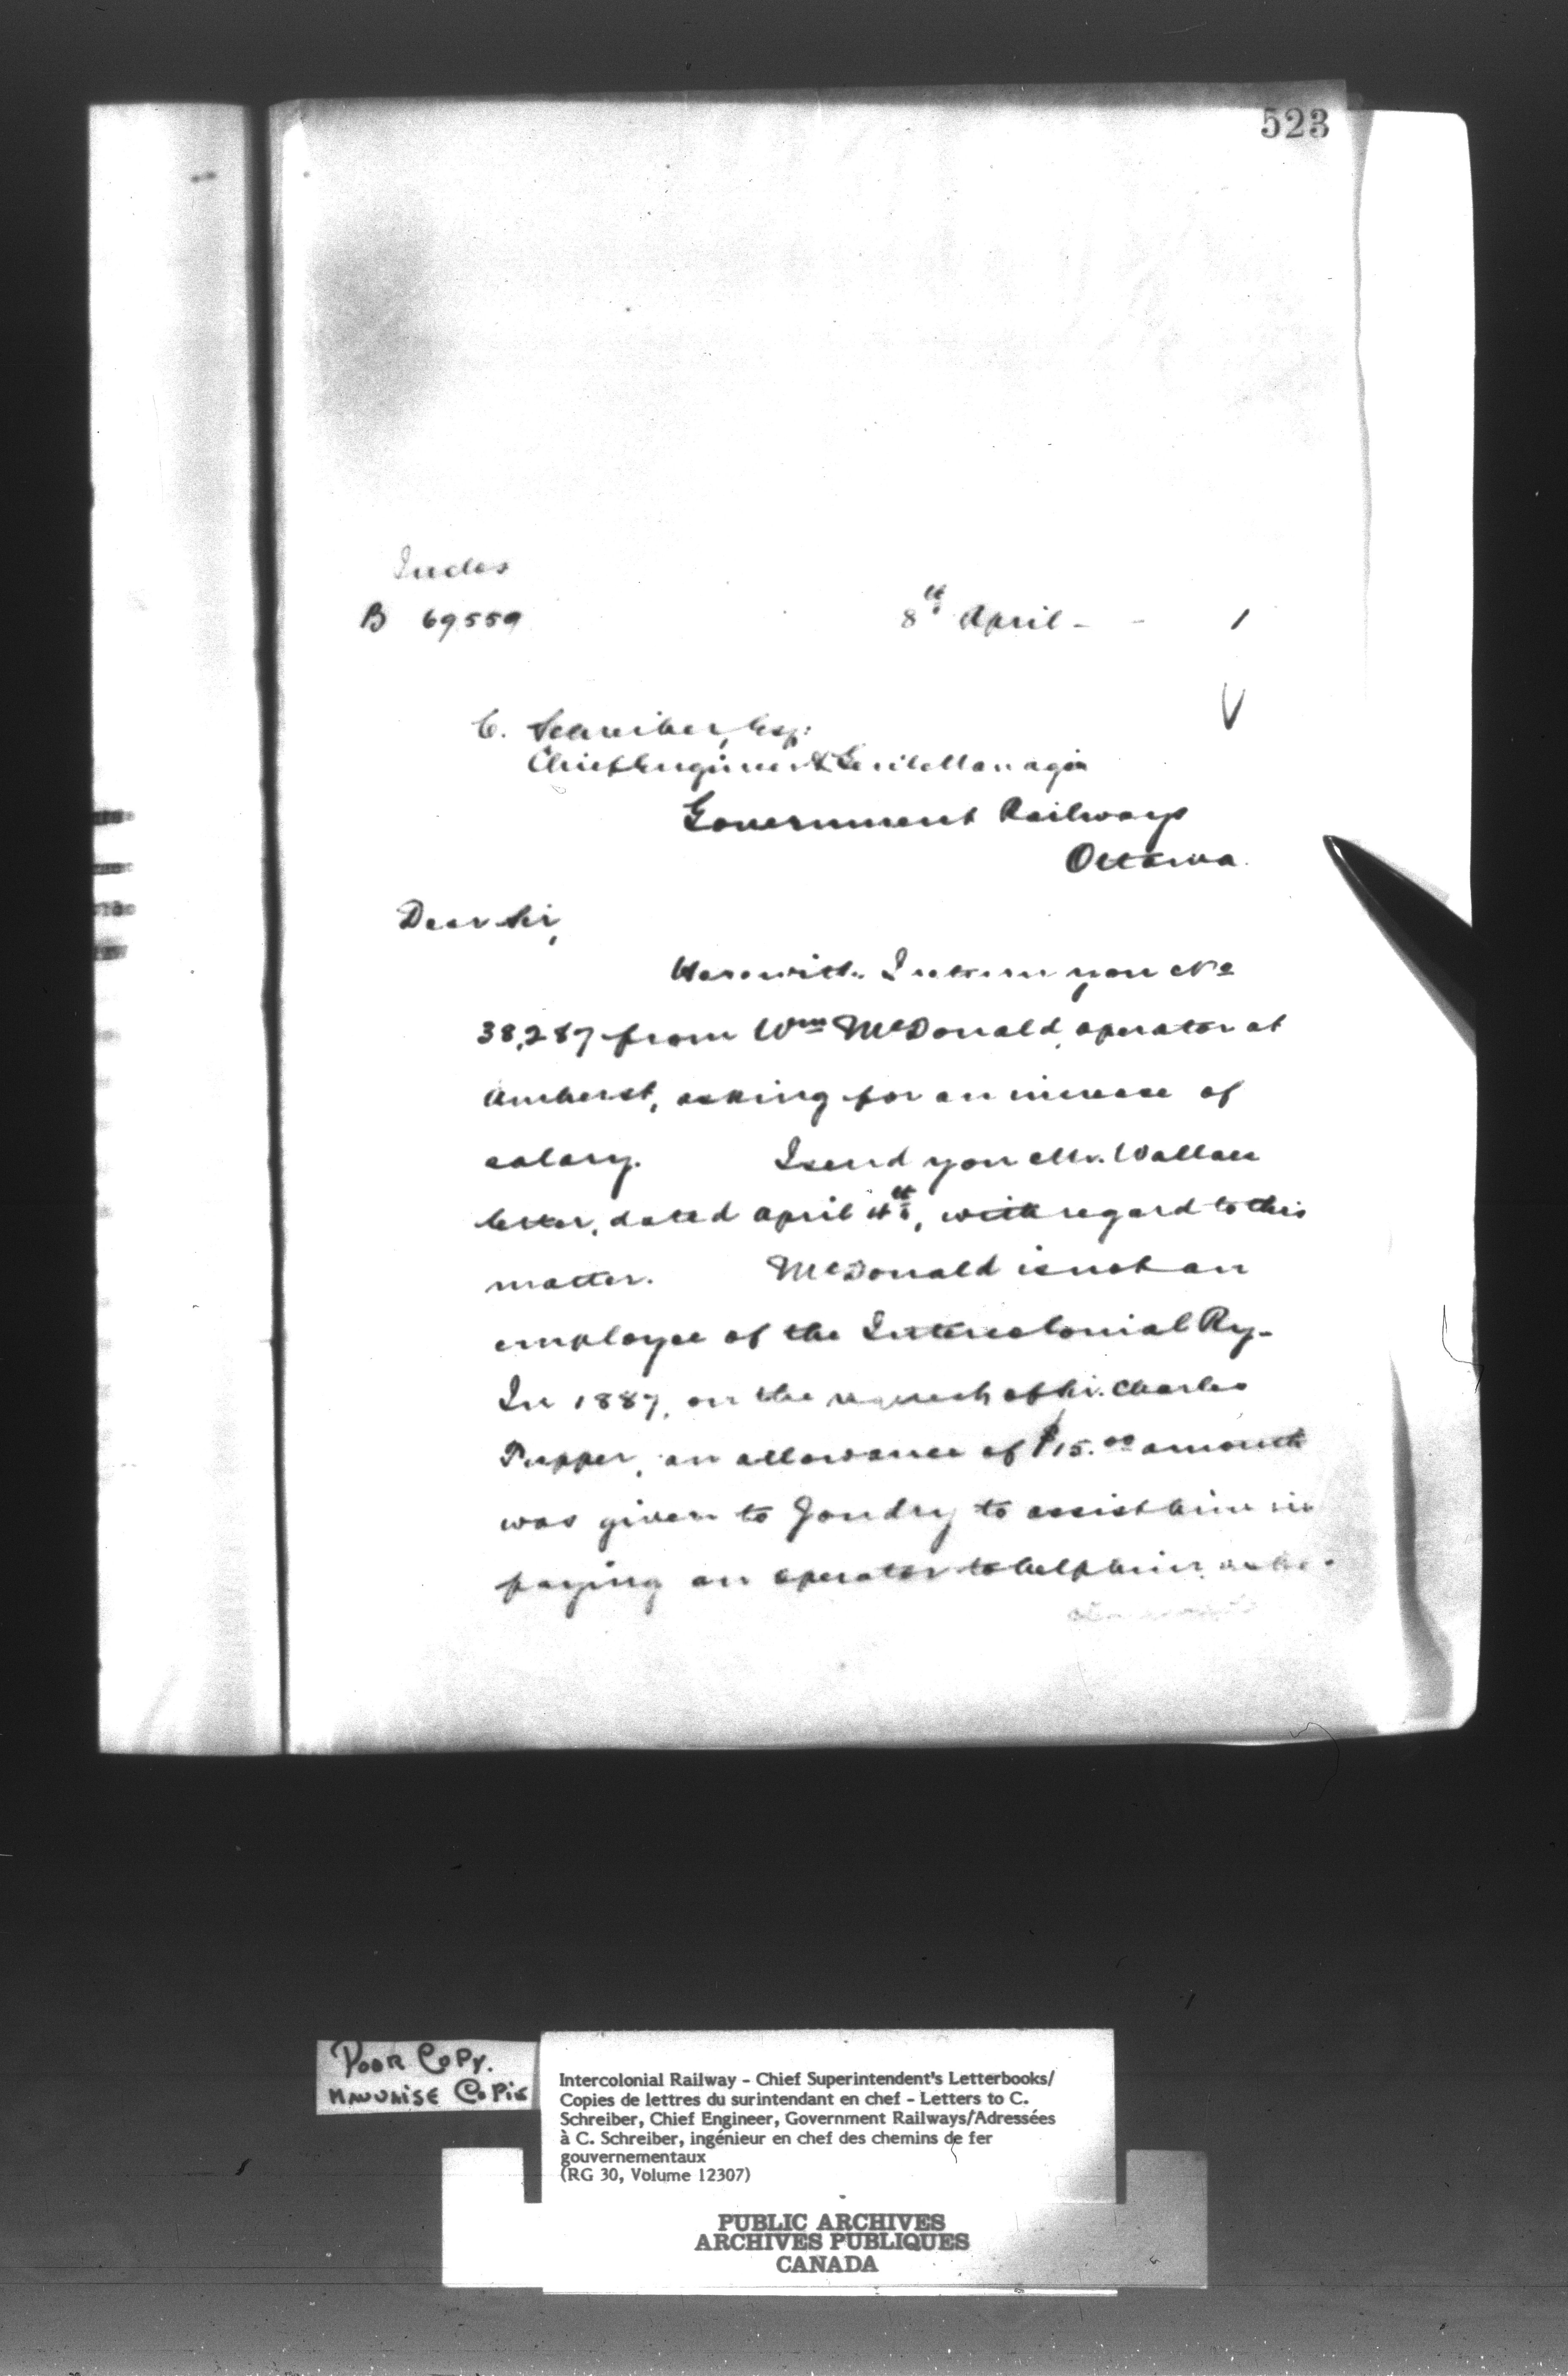 523
Index
B 69559
8th April - - 1
C. Schreiber, Esq:
Chief Engineer & Genl Manager
Government Railways
Ottawa.
Dear Sir,
Herewith I return you No
38,287 from Wm McDonald, operator at
Amherst, asking for an increase of
salary. I send you Mr. Wallace
letter, dated April 4th, with regard to this
matter. McDonald is not an
employee of the Intercolonial Ry.
In 1887, on the request of Sir. Charles
Tupper, an allowance of $15.00 a month
was given to to assist him in
paying an operator to help him
POOR COPY.
MAUVAISE COPIE
Intercolonial Railway - Chief Superintendent's Letterbooks/
Copies de lettres du surintendant en chef - Letters to C.
Schreiber, Chief Engineer, Government Railways/Adressées
à C. Schreiber, ingénieur en chef des chemins de fer
gouvernementaux
(RG 30, Volume 12307)
PUBLIC ARCHIVES
ARCHIVES PUBLIQUES
CANADA